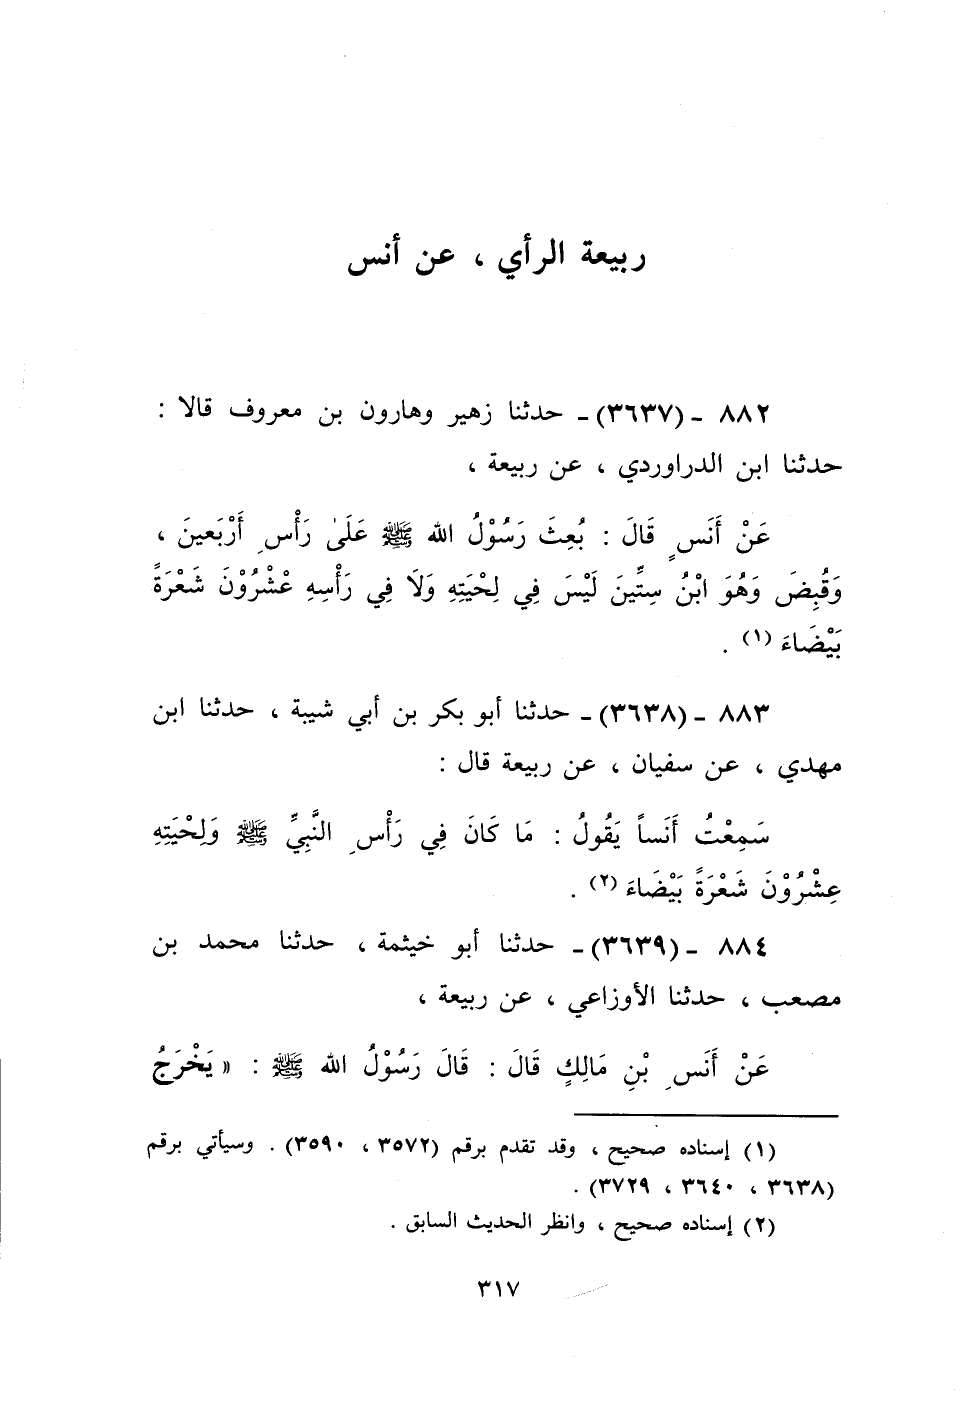 ربيعة الرأي ، عن أنس
٨٨٢ ـ (٣٦٣٧)ـ حدثنا زهير وهارون بن معروف قالا :
حدثنا ابن الدراوردي ، عن ربيعة ،
عَنْ أَنَسٍ قَالَ : بُعِثَ رَسُوْلُ الله ﷺ عَلَىٰ رَأْسِ أَرْبَعينَ ،
وَقُبِضَ وَهُوَ ابْنُ سِتِّينَ لَيْسَ فِي لِحْيَتِهِ وَلَا فِي رَأْسِهِ عْشْرُوْنَ شَعْرَةً
بَيْضَاءَ (١) .
٨٨٣ ـ (٣٦٣٨)ـ حدثنا أبو بكر بن أبي شيبة ، حدثنا ابن
مهدي ، عن سفيان ، عن ربيعة قال :
سَمِعْتُ أَنَساً يَقُولُ : مَا كَانَ فِي رَأْسِ النَّبِيِّ ﷺ وَلِحْيَتِهِ
عِشْرُوْنَ شَعْرَةً بَيْضَاءَ (٢) .
٨٨٤ ـ (٣٦٣٩)ـ حدثنا أبو خيثمة ، حدثنا محمد بن
مصعب ، حدثنا الأوزاعي ، عن ربيعة ،
عَنْ أَنَسِ بْنِ مَالِكٍ قَالَ : قَالَ رَسُوْلُ الله ﷺ : « يَخْرَجُ
(١) إسناده صحيح ، وقد تقدم برقم (٣٥٧٢ ، ٣٥٩٠) . وسيأتي برقم
(٣٦٣٨ ، ٣٦٤٠ ، ٣٧٢٩) .
(٢) إسناده صحيح ، وانظر الحديث السابق .
٣١٧